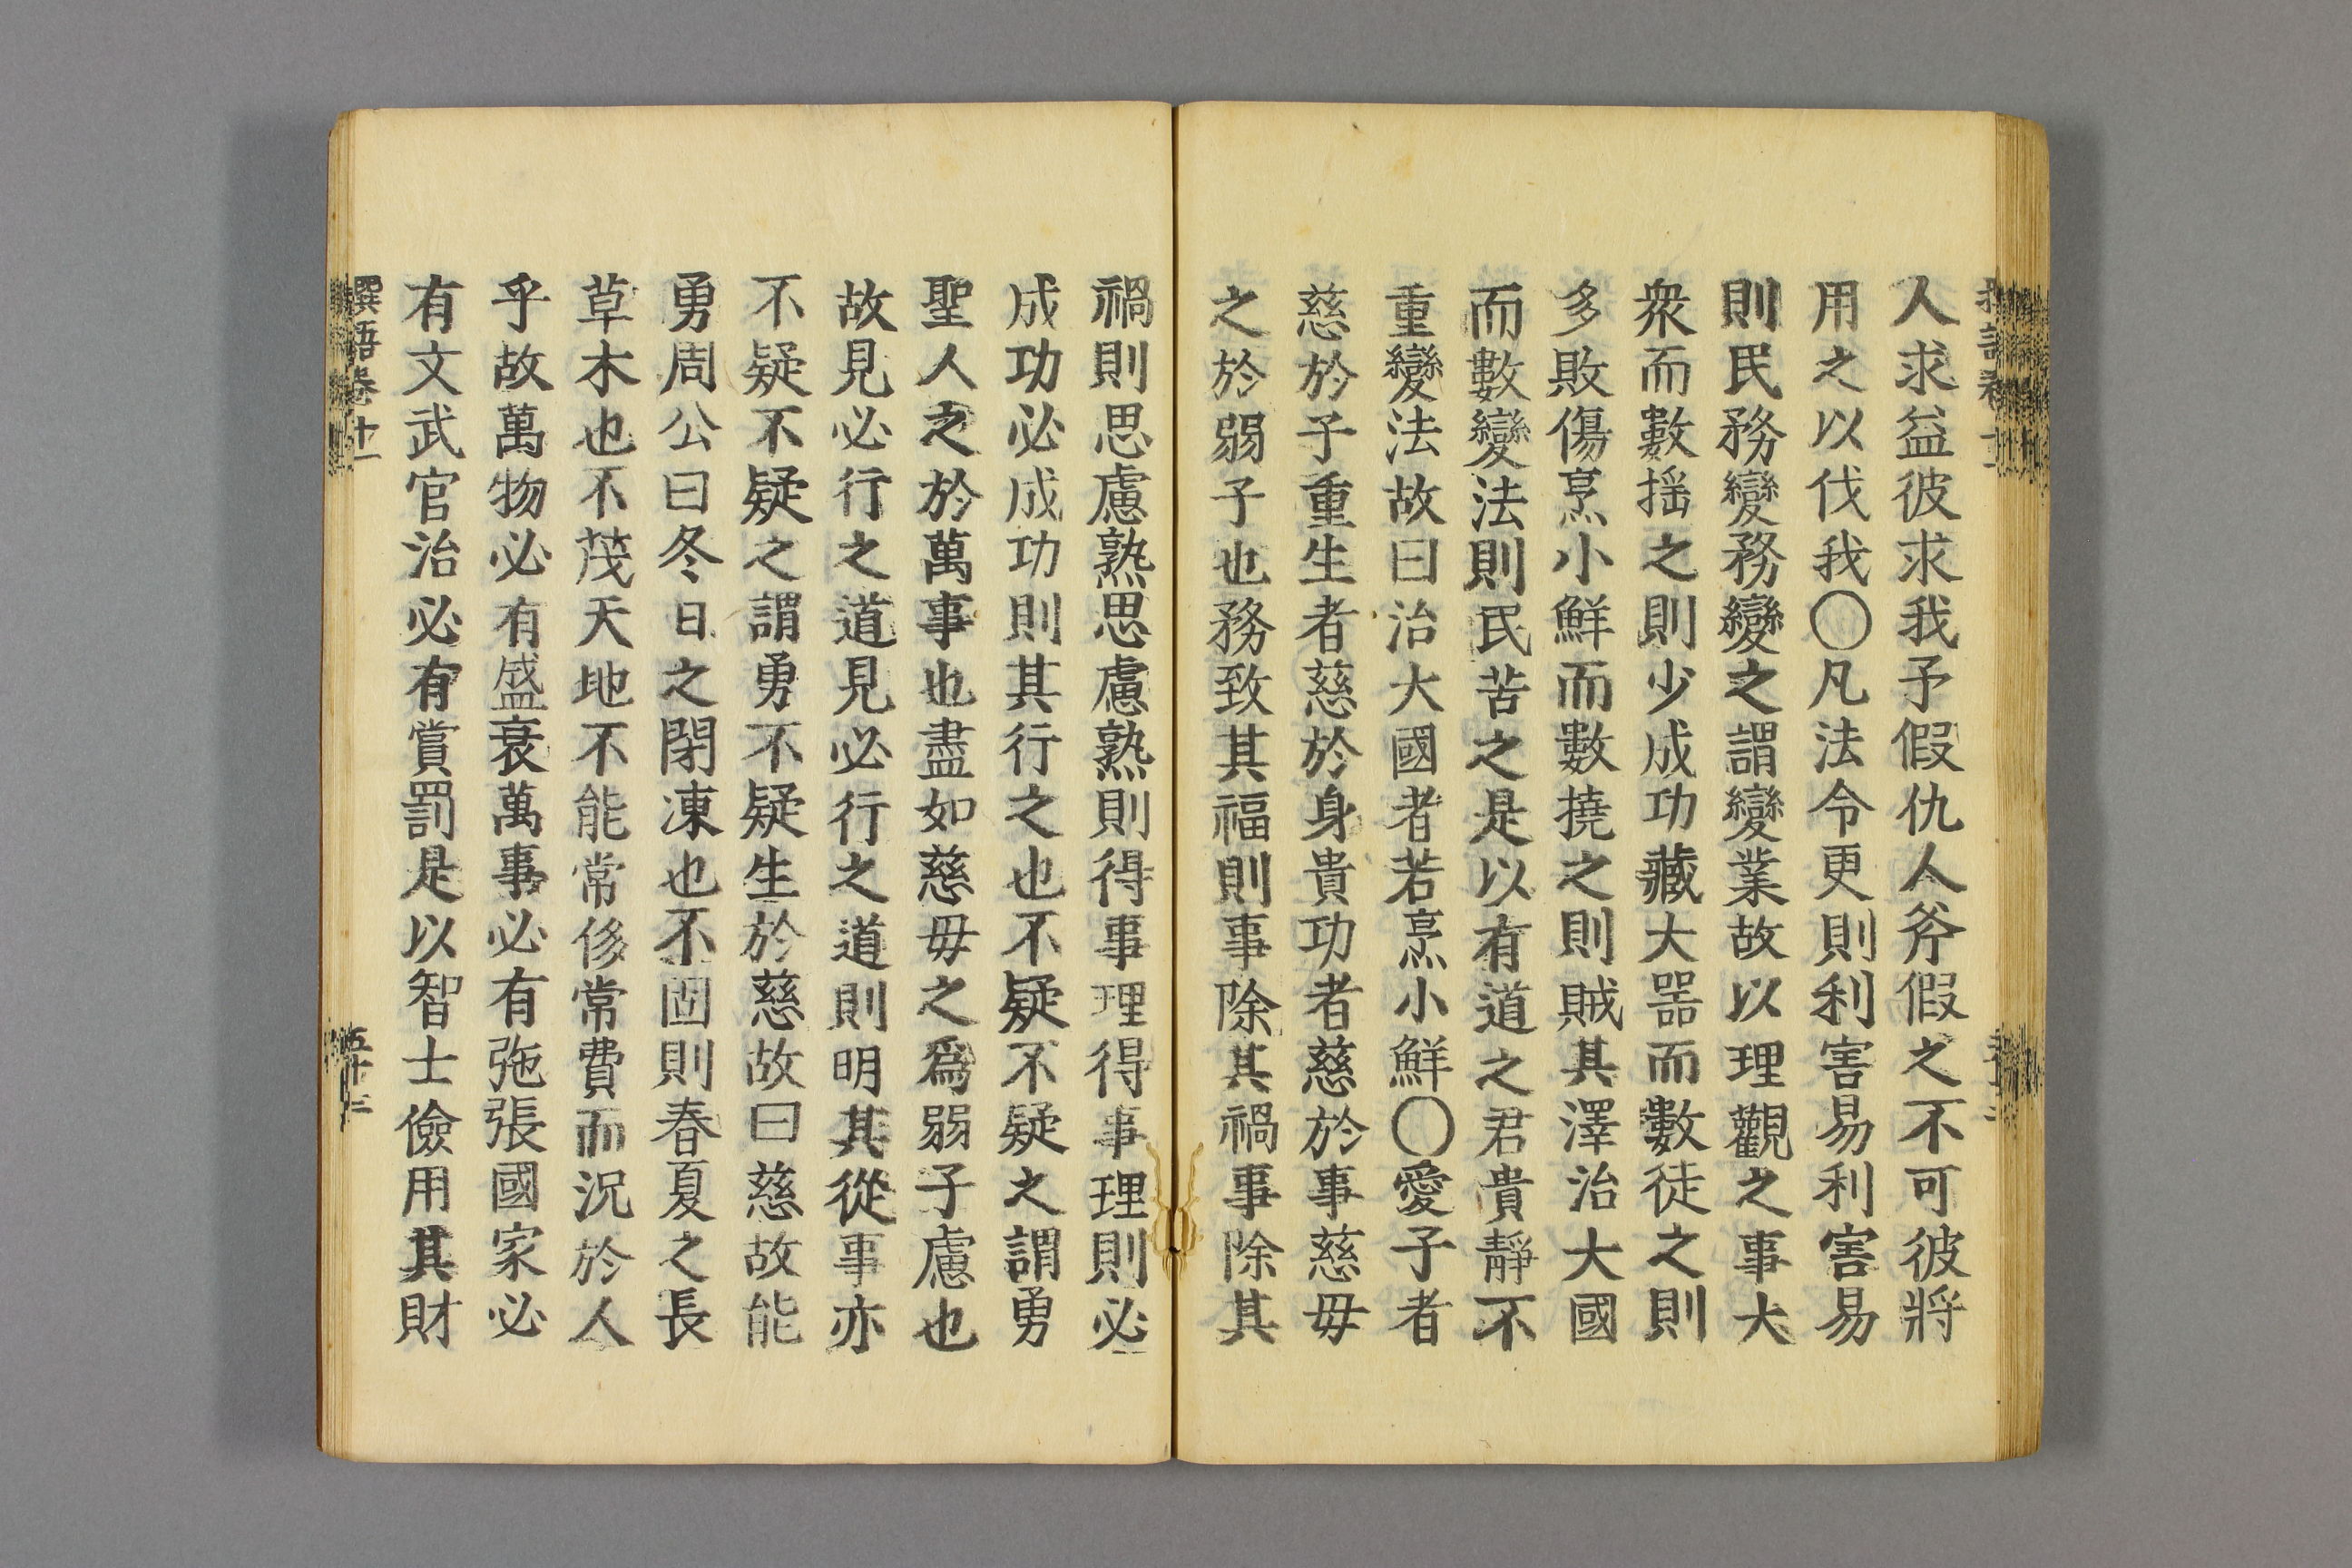 人求益彼求我予假仇人斧假之不可彼將
用之以伐我〇凡法令更則利害易利害易
則民務變務變之謂變業故以理觀之事大
衆而數揺之則少成功藏大噐而數徒之則
多敗傷烹小鮮而數撓之則賊其澤治大國
而數變法則民苦之是以有道之君貴靜不
重變法故曰治大國者若烹小鮮〇愛子者
慈於子重生者慈於身貴功者慈於事慈毋
之於弱子也務致其福則事除其禍事除其
禍則思慮熟思慮熟則得事理得事理則必
成功必成功則其行之也不疑不疑之謂勇
聖人之於萬事也盡如慈毋之爲弱子慮也
故見必行之道見必行之道則明其從事亦
不疑不疑之謂勇不疑生於慈故曰慈故能
勇周公曰冬日之閉凍也不固則春夏之長
草木也不茂天地不能常侈常費而況於人
乎故萬物必有盛衰萬事必有弛張國家必
有文武官治必有賞罰是以智士儉用其財
撰語卷十一
五十三